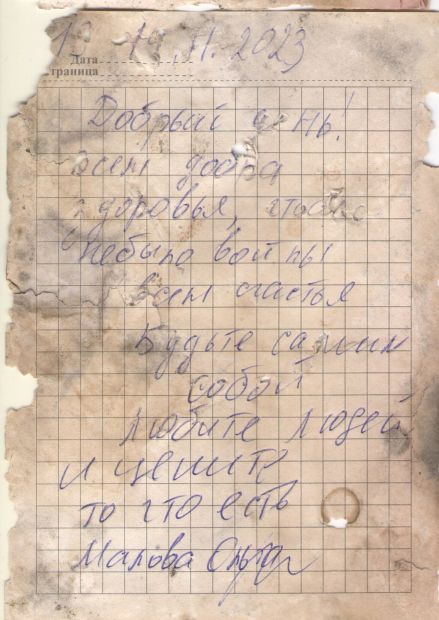 19 19.11.2023
Дата
траница
Добрый день!
всем добра
здоровья, чтобы
небыло войны
всем счастья
Будьте самим
собой
любите людей
и цените
то что есть
Малова